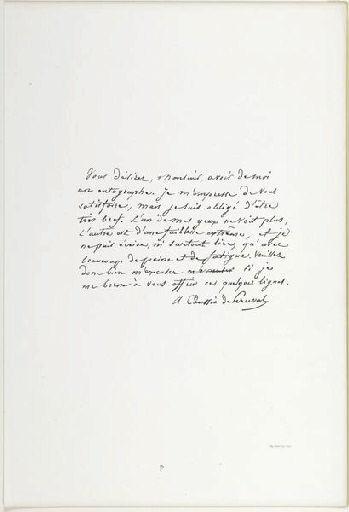 Vous désirez, Monsieur, avoir de moi
un autographe. je m'empresse de vous
satisfaire, mais je suis obligé d'être
très bref. L'un de mes yeux ne voit plus,
l'autre est d'une faiblesse extrême, et je
ne puis écrire, ni surtout lire, qu'avec
beaucoup de peine et de fatigue. Veuillez
donc bien m'excuser si je
me borne à vous offrir ces quelques lignes.
A